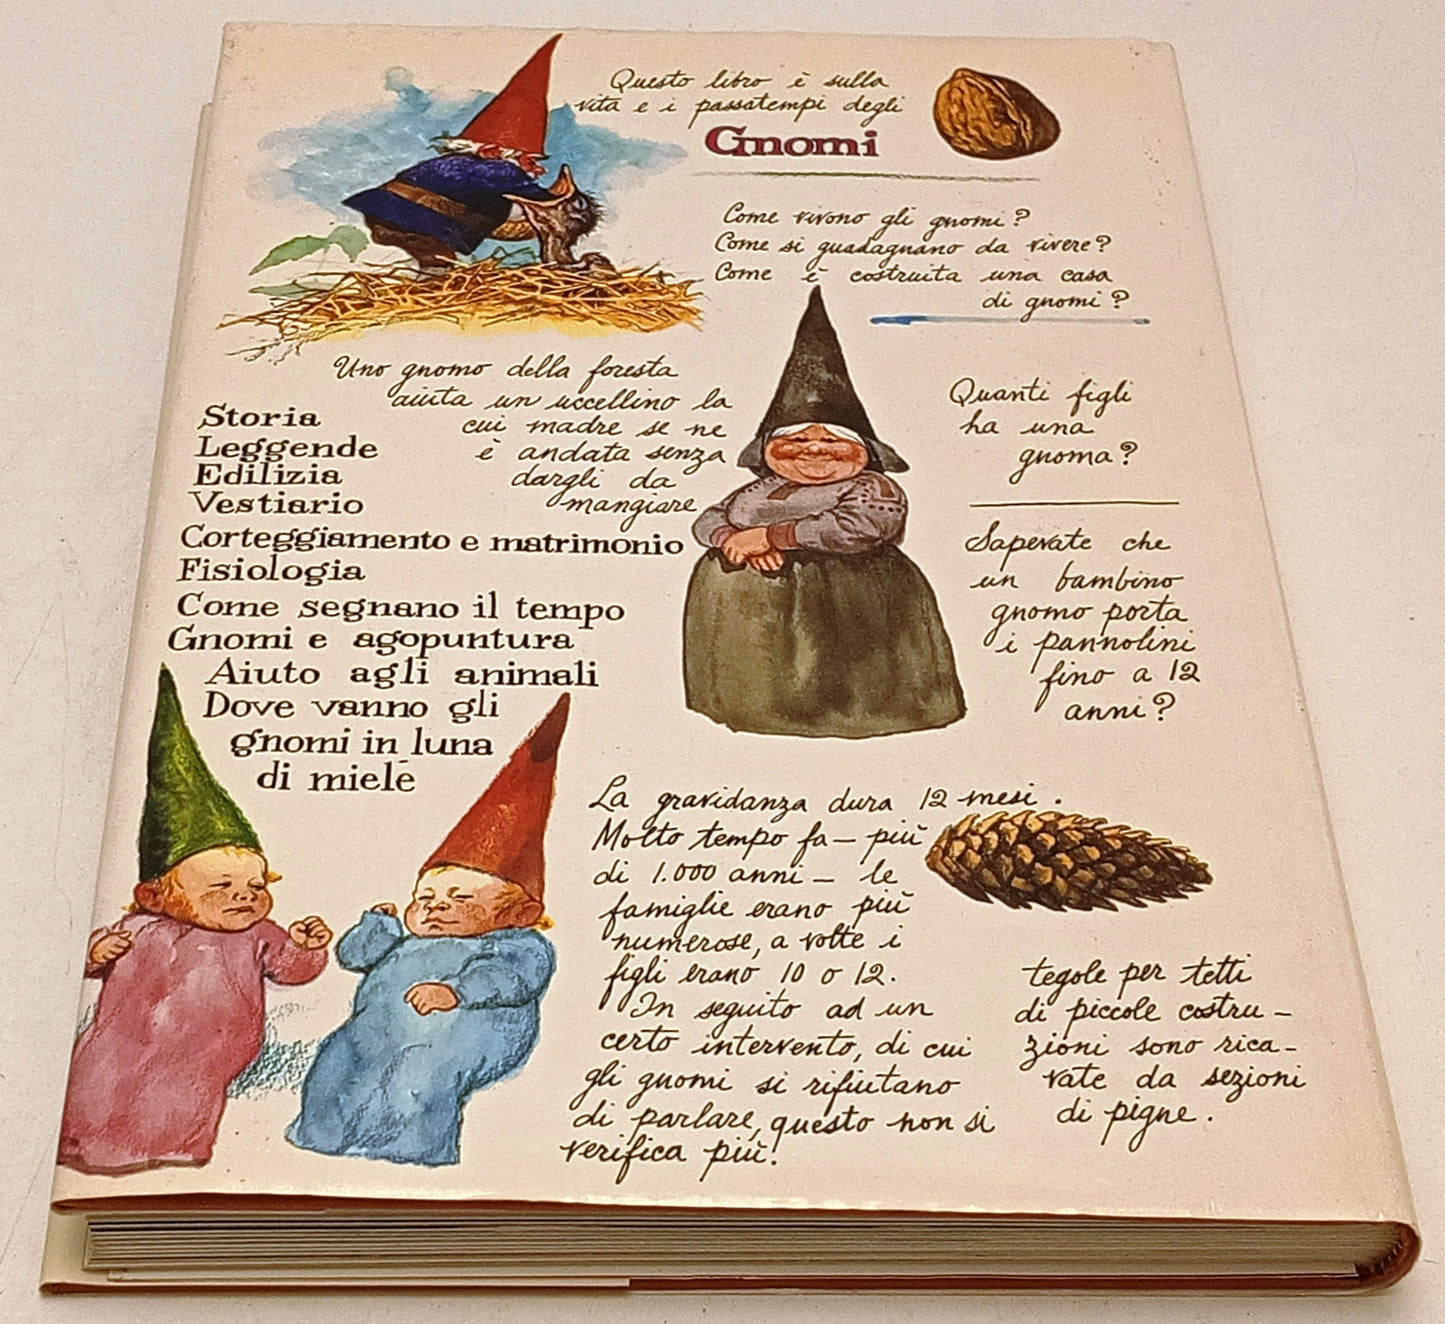 Questo libro è sulla
vita e i passatempi degli
Gnomi
Come vivono gli gnomi?
Come si guadagnano da vivere?
Come è costruita una casa
di gnomi?
Uno gnomo della foresta
aiuta un uccellino la
cui madre se ne
è andata senza
dargli da
mangiare
Storia
Leggende
Edilizia
Vestiario
Corteggiamento e matrimonio
Fisiologia
Come segnano il tempo
Gnomi e agopuntura
Aiuto agli animali
Dove vanno gli
gnomi in luna
di miele
Quanti figli
ha una
gnoma?
Sapevate che
un bambino
gnomo porta
i pannolini
fino a 12
anni?
La gravidanza dura 12 mesi.
Molto tempo fa — più
di 1.000 anni — le
famiglie erano più
numerose, a volte i
figli erano 10 o 12.
In seguito ad un
certo intervento, di cui
gli gnomi si rifiutano
di parlare, questo non si
verifica più!
tegole per tetti
di piccole costru-
zioni sono rica-
vate da sezioni
di pigne.